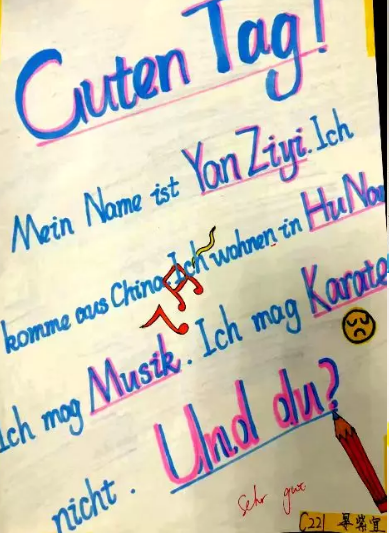 Guten Tag!
Mein Name ist Yan Ziyi. Ich
komme aus China. Ich wohnen in HuNan
Ich mag Musik. Ich mag Karate
nicht. Und du?
Sehr gut
C221